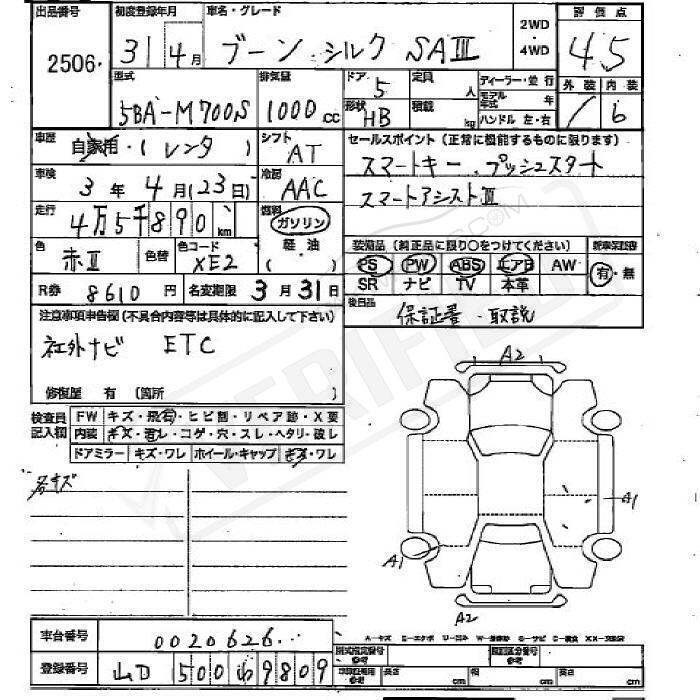 出品番号 初度登録年月 車名・グレード 2WD・4WD 評価点
2506 31年4月 ブーン シルク SAⅢ 4.5
型式 排気量 ドア 定員 ディーラー・並行 外装 内装
5BA-M700S 1000cc 5 人 モデル年式 年 b
形状 積載 ハンドル 左・右
HB kg
車歴 自家用・(レンタ) シフト AT セールスポイント(正常に機能するものに限ります)
車検 3年4月(23日) 冷房 AAC スマートキー・プッシュスタート
走行 4万5千890km 燃料 ガソリン スマートアシストⅢ
軽油
色 赤Ⅱ 色替 色コード XE2 ( ) 装備品(純正品に限り○をつけてください) 新車保証書
PS PW ABS エアB AW 有・無
SR ナビ TV 本革
R券 8610円 名変期限 3月31日 後日品
保証書・取説
注意事項申告欄(不具合内容等は具体的に記入して下さい)
社外ナビ ETC
修復歴 有(箇所 )
検査員記入欄 FW キズ・飛石・ヒビ割・リペア跡・X要
内装 キズ・汚レ・コゲ・穴・スレ・ヘタリ・破レ
ドアミラー キズ・ワレ ホイール・キャップ キズ・ワレ
各キズ
A2
A1
A1
A2
A-キズ E-エクボ U-凹み
車台番号 0020626
登録番号 山口 500 9809
型式指定番号 参考 類別区分番号 参考
参考 長さ cm 幅 cm 高さ cm
VERIFIED
.COM